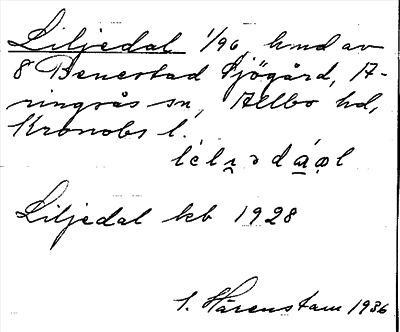 Liljedal 1/96, hmd av
8 Benestad Sjögård, A-
ringsås sn, Allbo hd,
Kronobs l.
Liljedal kb 1928
S. Hårenstam 1936